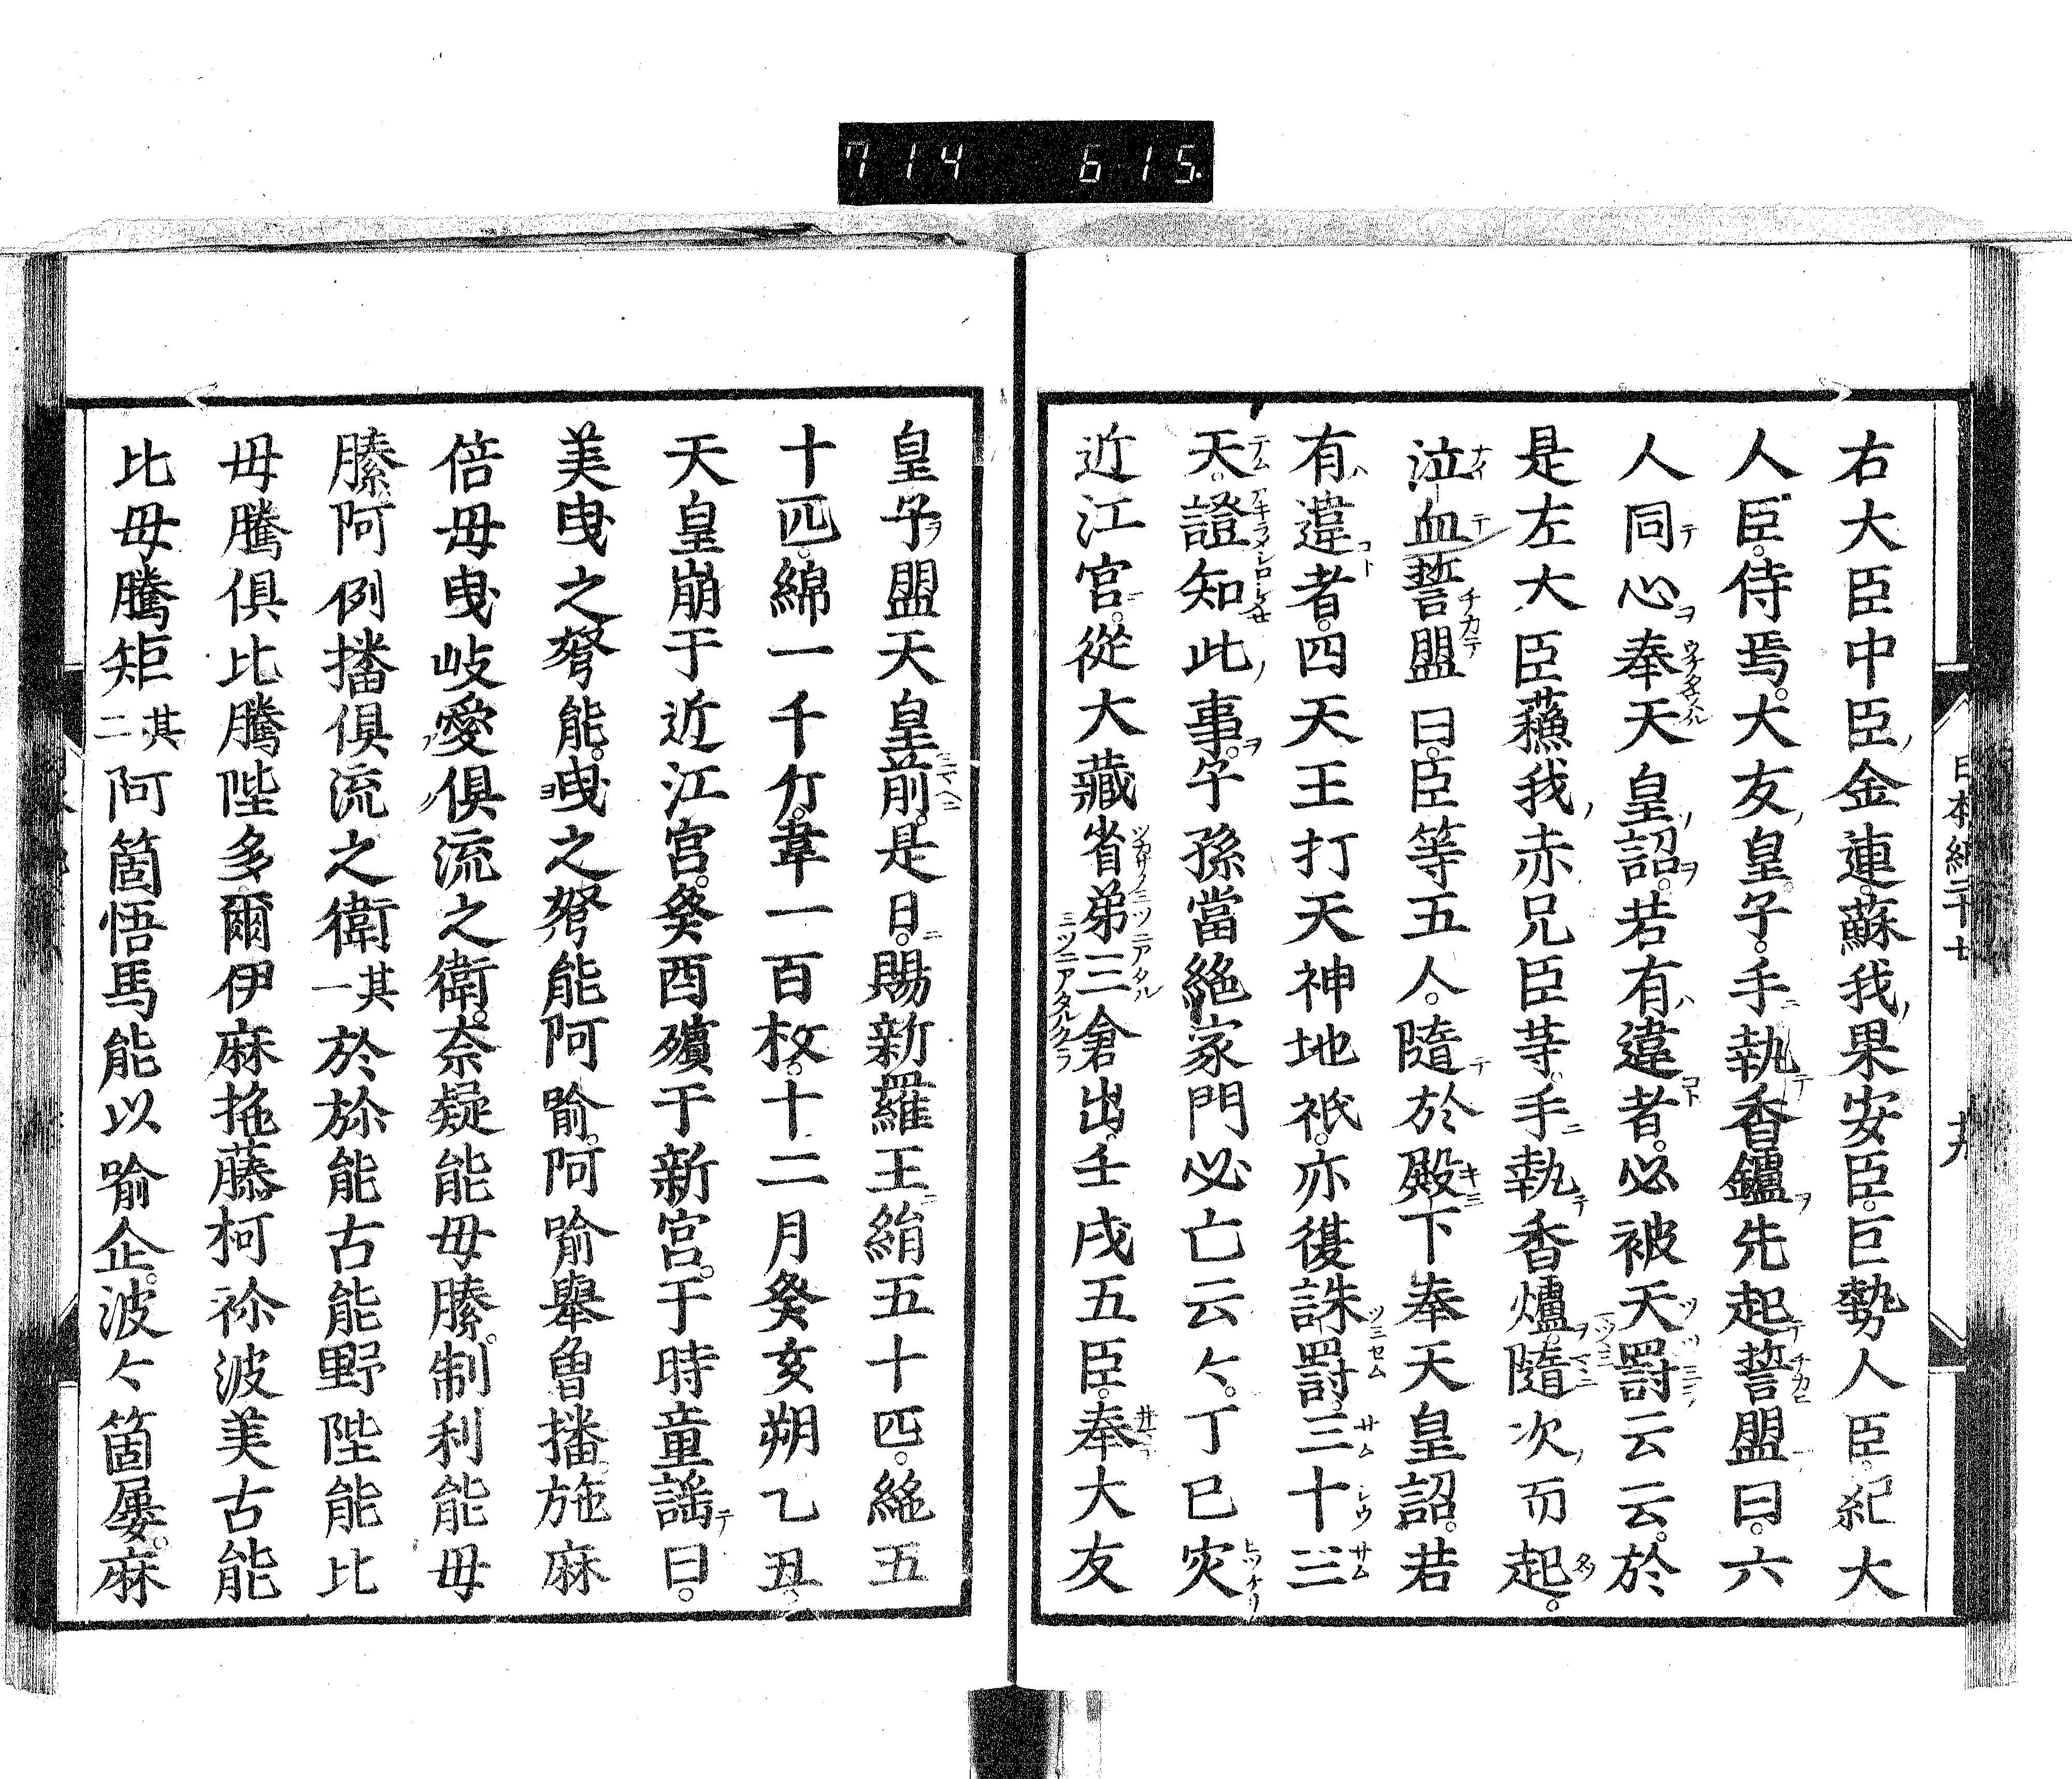 714 615
日本紀二十七 十九
右大臣中臣金連蘇我果安臣巨勢人臣紀大
人臣侍焉大友皇子手執香鑪先起誓盟曰六
人同心奉天皇詔若有違者必被天罰云云於
是左大臣蘓我赤兄臣等手執香爐隨次而起
泣血誓盟曰臣等五人隨於殿下奉天皇詔若
有違者四天王打天神地祇亦復誅罰三十三
天證知此事子孫當絶家門必亡云々丁巳灾
近江宮從大藏省第三倉出壬戌五臣奉大友
皇子盟天皇前是日賜新羅王絹五十匹絁五
十匹綿一千斤韋一百枚十二月癸亥朔乙丑
天皇崩于近江宮癸酉殯于新宮于時童謡曰
美曳之弩能曳之弩能阿喩阿喩擧魯播施麻
倍母曳岐愛倶流之衛奈疑能母縢制利能母
縢阿例播倶流之衛其一於弥能古能野陛能比
母騰倶比騰陛多爾伊麻拕藤柯祢波美古能
比母騰矩其二阿箇悟馬能以喩企波々箇屢麻